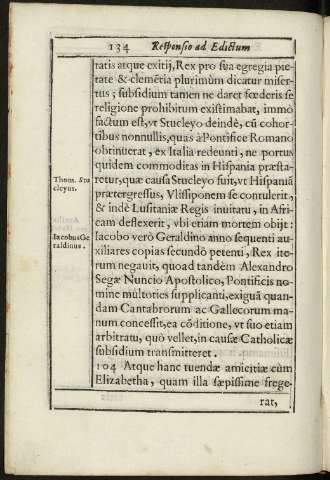 134 Responsio ad Edictum
tatis atque exitij, Rex pro sua egregia pie
tate & clemẽtia plurimùm dicatur miser
tus; subsidium tamen ne daret fœderis se
religione prohibitum existimabat, immò
factum est, vt Stucleyo deindè, cũ cohor-
tibus nonnullis, quas à Pontifice Romano
obtinuerat, ex Italia redeunti, ne portus
quidem commoditas in Hispania præsta-
Thom. Stu
cleyus.
retur, quæ causa Stucleyo fuit, vt Hispaniã
prætergressus, Vlissiponem se contulerit,
& indè Lusitaniæ Regis inuitatu, in Afri-
cam deflexerit, vbi etiam mortem obijt:
Iacobus Ge
raldinus.
Iacobo verò Geraldino anno sequenti au-
xiliares copias secundò petenti, Rex ite-
rum negauit, quoad tandèm Alexandro
Segæ Nuncio Apostolico, Pontificis no-
mine multoties supplicanti, exiguã quan-
dam Cantabrorum ac Gallecorum ma-
num concessit, ea cõditione, vt suo etiam
arbitratu, quò vellet, in causæ Catholicæ
subsidium transmitteret.
104 Atque hanc tuendæ amicitiæ cùm
Elizabetha, quam illa sæpissime frege-
rat,